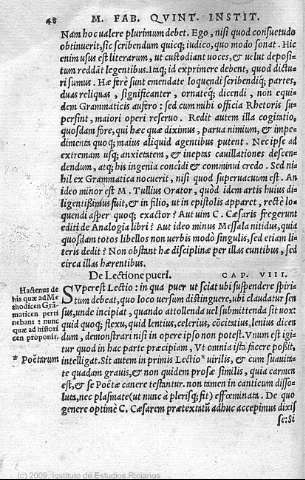 48 M. FAB. QVINT. INSTIT.
Nam hoc valere plurimum debet. Ego, nisi quod consuetudo
obtinuerit, sic scribendum quicq; iudico, quo modo sonat. Hic
enim usus est literarum, ut custodiant uoces, & uelut deposi-
tum reddāt legentibus. Itaq; id exprimere debent, quod dictu
ri sumus. Hæ ferè sunt emendate loquendi scribendiq́; partes,
duas reliquas, significanter, ornateq́; dicendi, non equi
dem Grammaticis aufero: sed cum mihi officia Rhetoris su
persint, maiori operi reservo. Redit autem illa cogitatio,
quosdam fore, qui hæc quæ diximus, parua nimium, & impe
dimenta quoq; maius aliquid agentibus putent. Nec ipse ad
extremam usq; anxietatem, & ineptas cauillationes descen-
dendum, atq; his ingenia concidi & comminui credo. Sed ni-
hil ex Grammatica nocuerit, nisi quod superuacuum est. An
ideo minor est M. Tullius Orator, quòd idem artis huius di-
ligentissimus fuit, & in filio, ut in epistolis apparet, rectè lo-
quendi asper quoq; exactor? Aut uim C. Cæsaris fregerunt
editi de Analogia libri? Aut ideo minus Messala nitidus, quia
quosdam totos libellos non uerbis modò singulis, sed etiam li-
teris dedit? Non obstant hæ disciplinæ per illas euntibus, sed
circa illas hærentibus.
De Lectione pueri. CAP. VIII.
Hactenus de
his quæ ad Me
thodicen Grā-
maticen perti
nebant: nunc
quæ ad histori
cen proponit.
SVperest Lectio: in qua puer ut sciat ubi suspendere spiri-
tum debeat, quo loco uersum distinguere, ubi claudatur sen
sus, unde incipiat, quando attollenda uel submittenda sit uox:
quid quoq; flexu, quid lentius, celerius, cōcitatius, lenius dicen
dum, demonstrari nisi in opere ipso non potest. Vnum est igi-
tur quod in hac parte præcipiam, Vt omnia ista facere possit,
* Poëtrum
intelligat. Sit autem in primis Lectio * uirilis, & cum suauita-
te quadam grauis, & non quidem prosæ similis, quia carmen
est, & se Poëtæ canere testantur. non tamen in canticum disso-
luta, nec plasmate (ut nunc à plerisq; fit) effœminata. De quo
genere optimè C. Cæsarem prætextatū adhuc accepimus dixis
se: Si
(c) 2009, Instituto de Estudios Riojanos